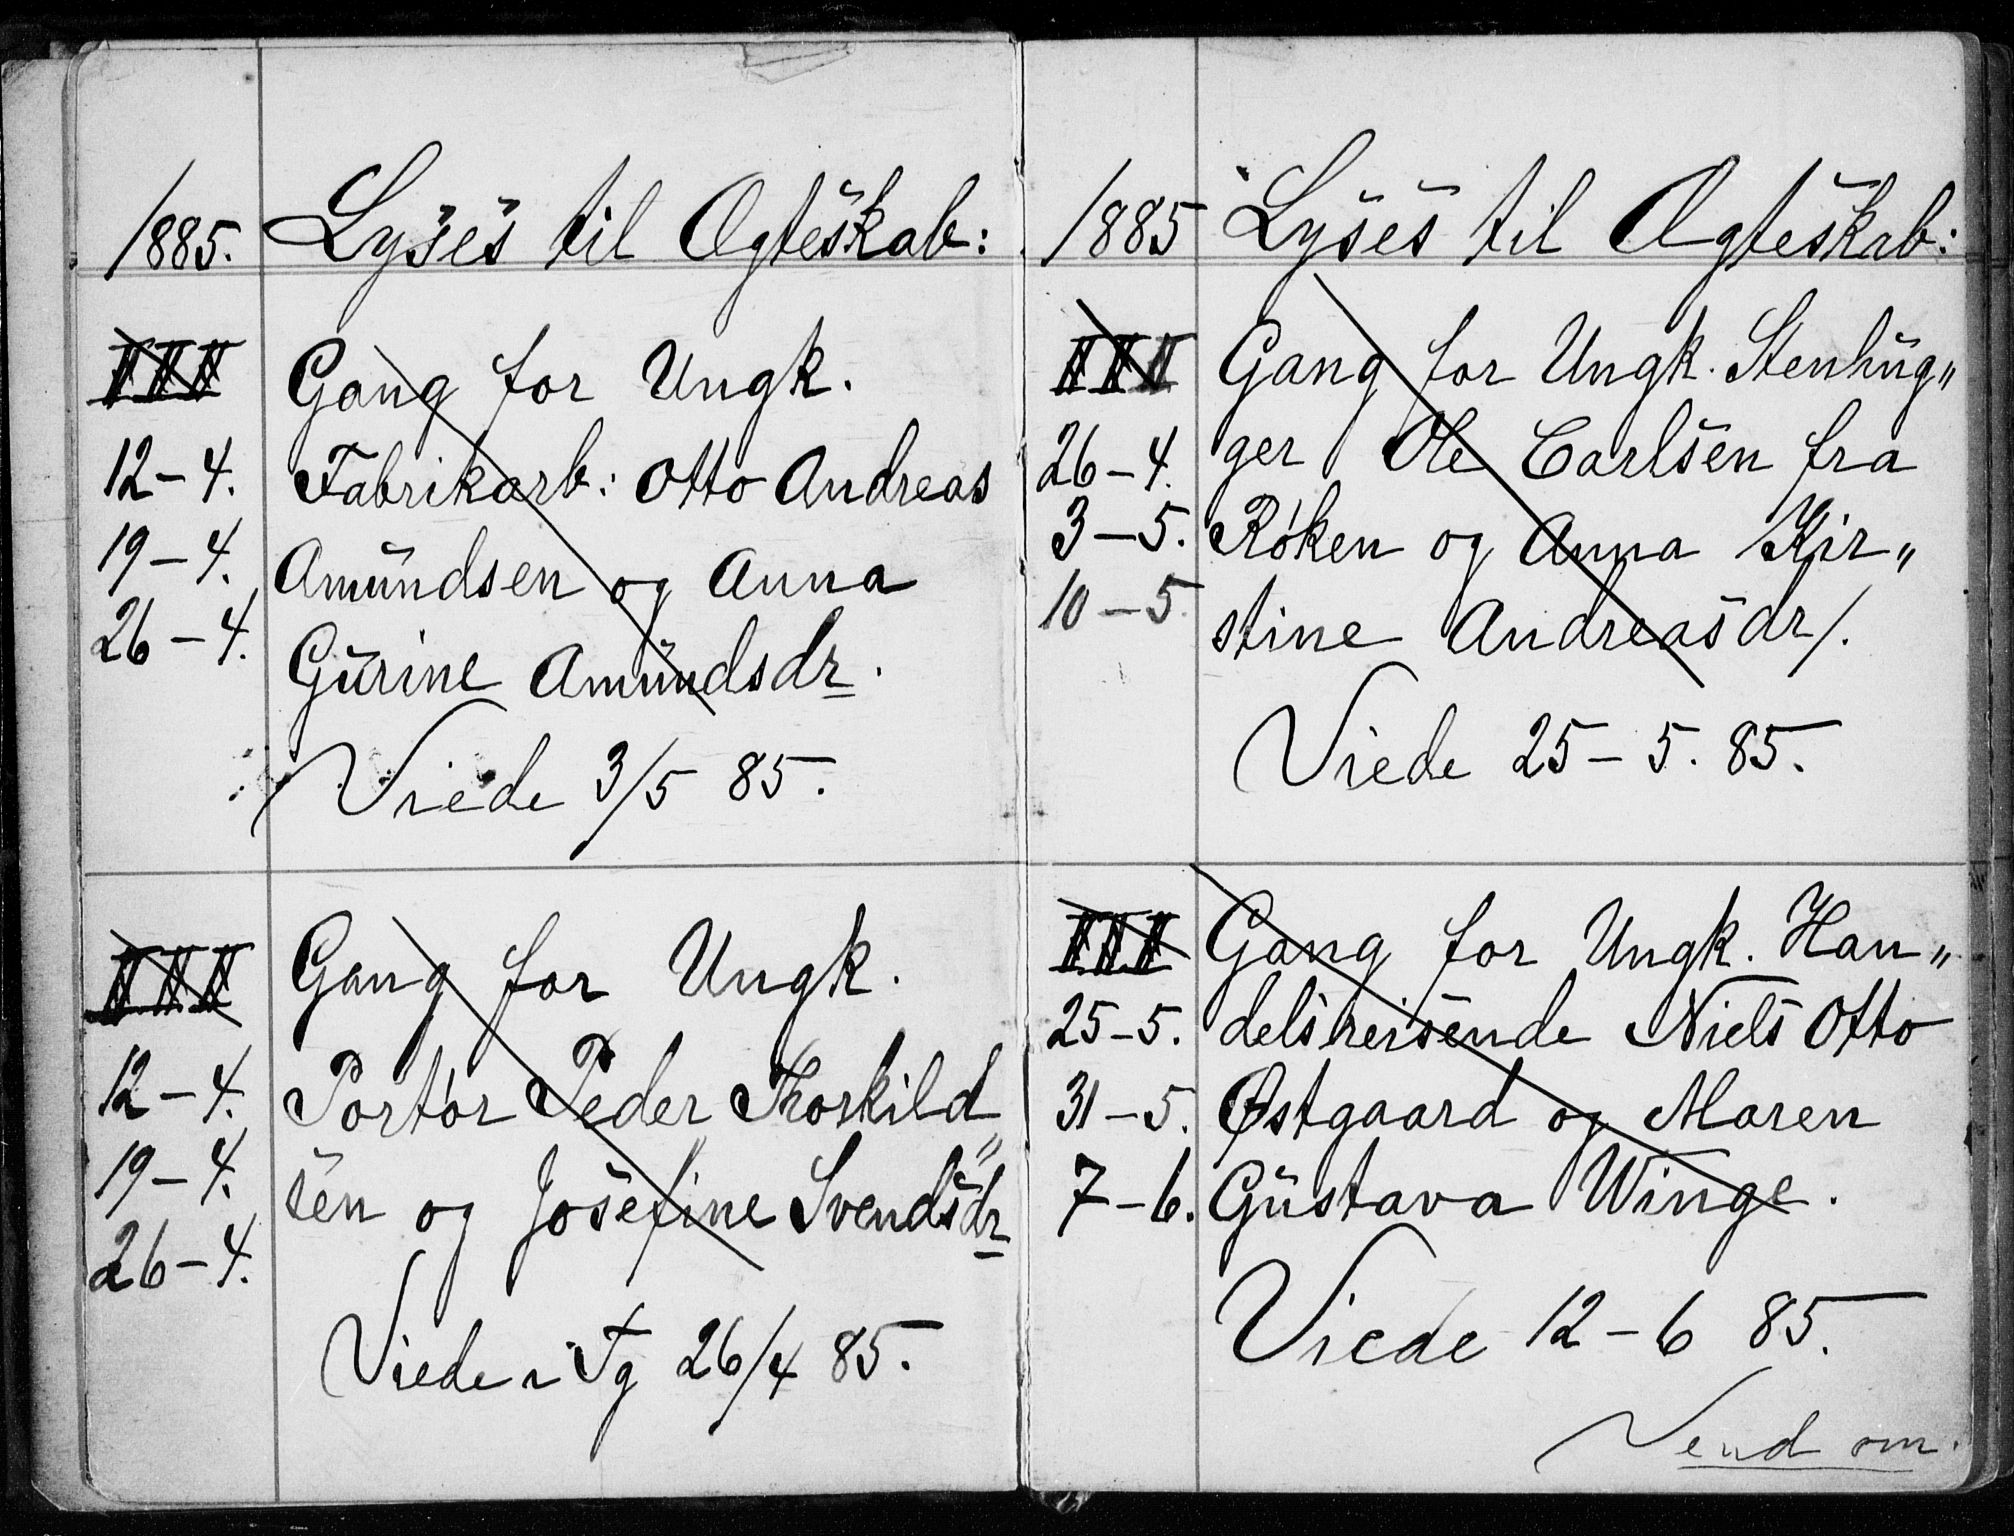 1885. Lyses til Ægteskab:
III Gang for Ungk.
12-4. Fabrikarb: Otto Andreas
19-4. Amundsen og Anna
26-4. Gurine Amundsdr.
Viede 3/5 85.
III Gang for Ungk.
12-4. Portør Peder Thorkild„
19-4. sen og Josefine Svendsdr
26-4.
Viede i Tg 26/4 85.
1885 Lyses til Ægteskab:
III Gang for Ungk. Stenhug„
26-4. ger Ole Carlsen fra
3-5. Røken og Anna Kir„
10-5. stine Andreasdr/.
Viede 25-5. 85.
III Gang for Ungk. Han„
25-5. delsreisende Niels Otto
31-5. Østgaard og Maren
7-6. Gustava Winge.
Viede 12-6 85.
Vend om.